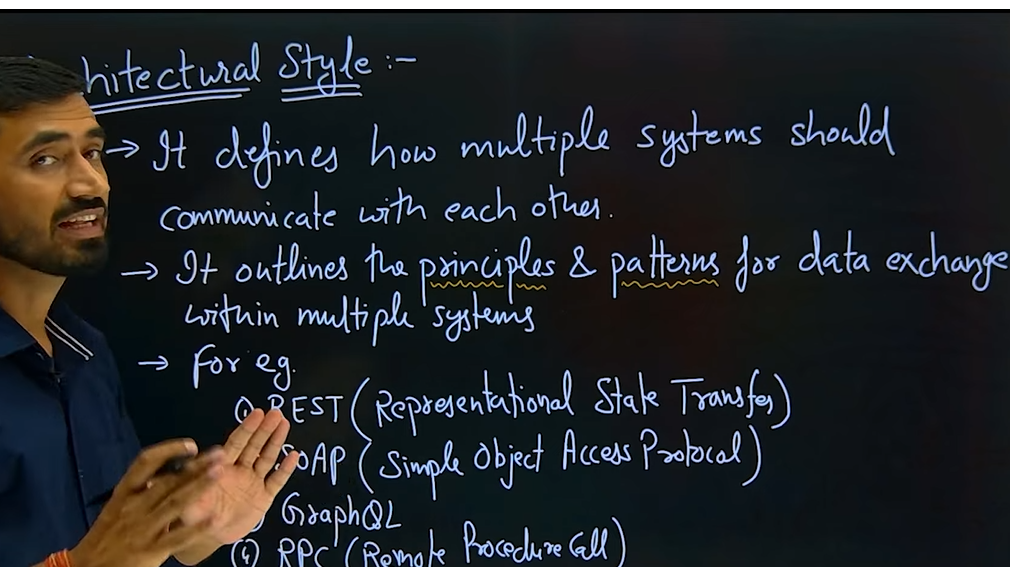 hitectural Style :-
→ It defines how multiple systems should
communicate with each other.
→ It outlines the principles & patterns for data exchange
within multiple systems
→ For eg.
① REST (Representational State Transfer)
SOAP (Simple Object Access Protocol)
GraphQL
④ RPC (Remote Procedure Call)